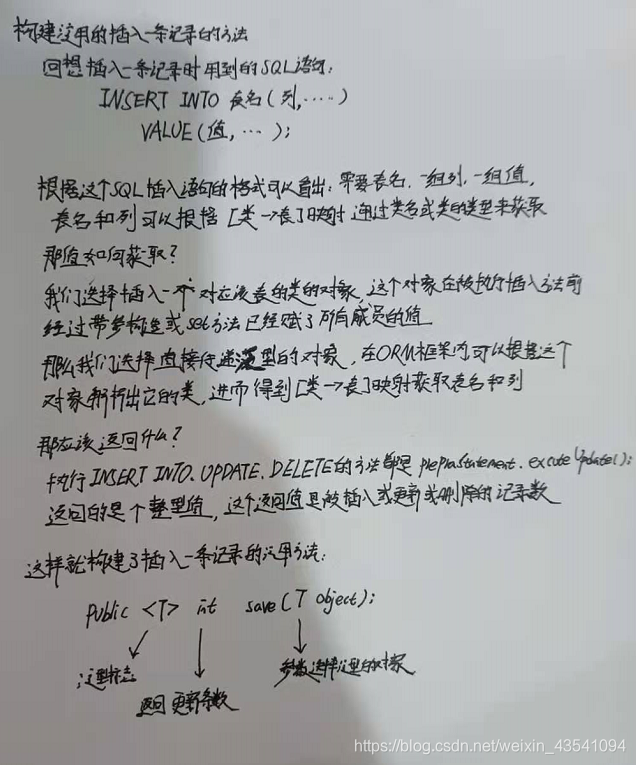 构建泛用的插入一条记录的方法
回想插入一条记录时用到的SQL语句:
INSERT INTO 表名(列,.....)
VALUE(值,...);
根据这个SQL插入语句的格式可以看出:需要表名,一组列,一组值,
表名和列可以根据[类→表]映射通过类名或类的类型来获取
那值如何获取?
我们选择插入一个对应该表的类的对象,这个对象在被执行插入方法前
经过带参构造或set方法已经赋了所有成员的值
那么我们选择直接传递泛型的对象,在ORM框架内可以根据这个
对象解析出它的类,进而得到[类→表]映射获取表名和列
那应该返回什么?
执行INSERT INTO.UPDATE.DELETE的方法都是 excuteUpdate();
返回的是个整型值,这个返回值是被插入或更新或删除的记录数
这样就构建了插入一条记录的泛用方法:
public <T> int save(T object);
泛型标志
返回更新条数
参数选择泛型的对象
https://blog.csdn.net/weixin_43541094